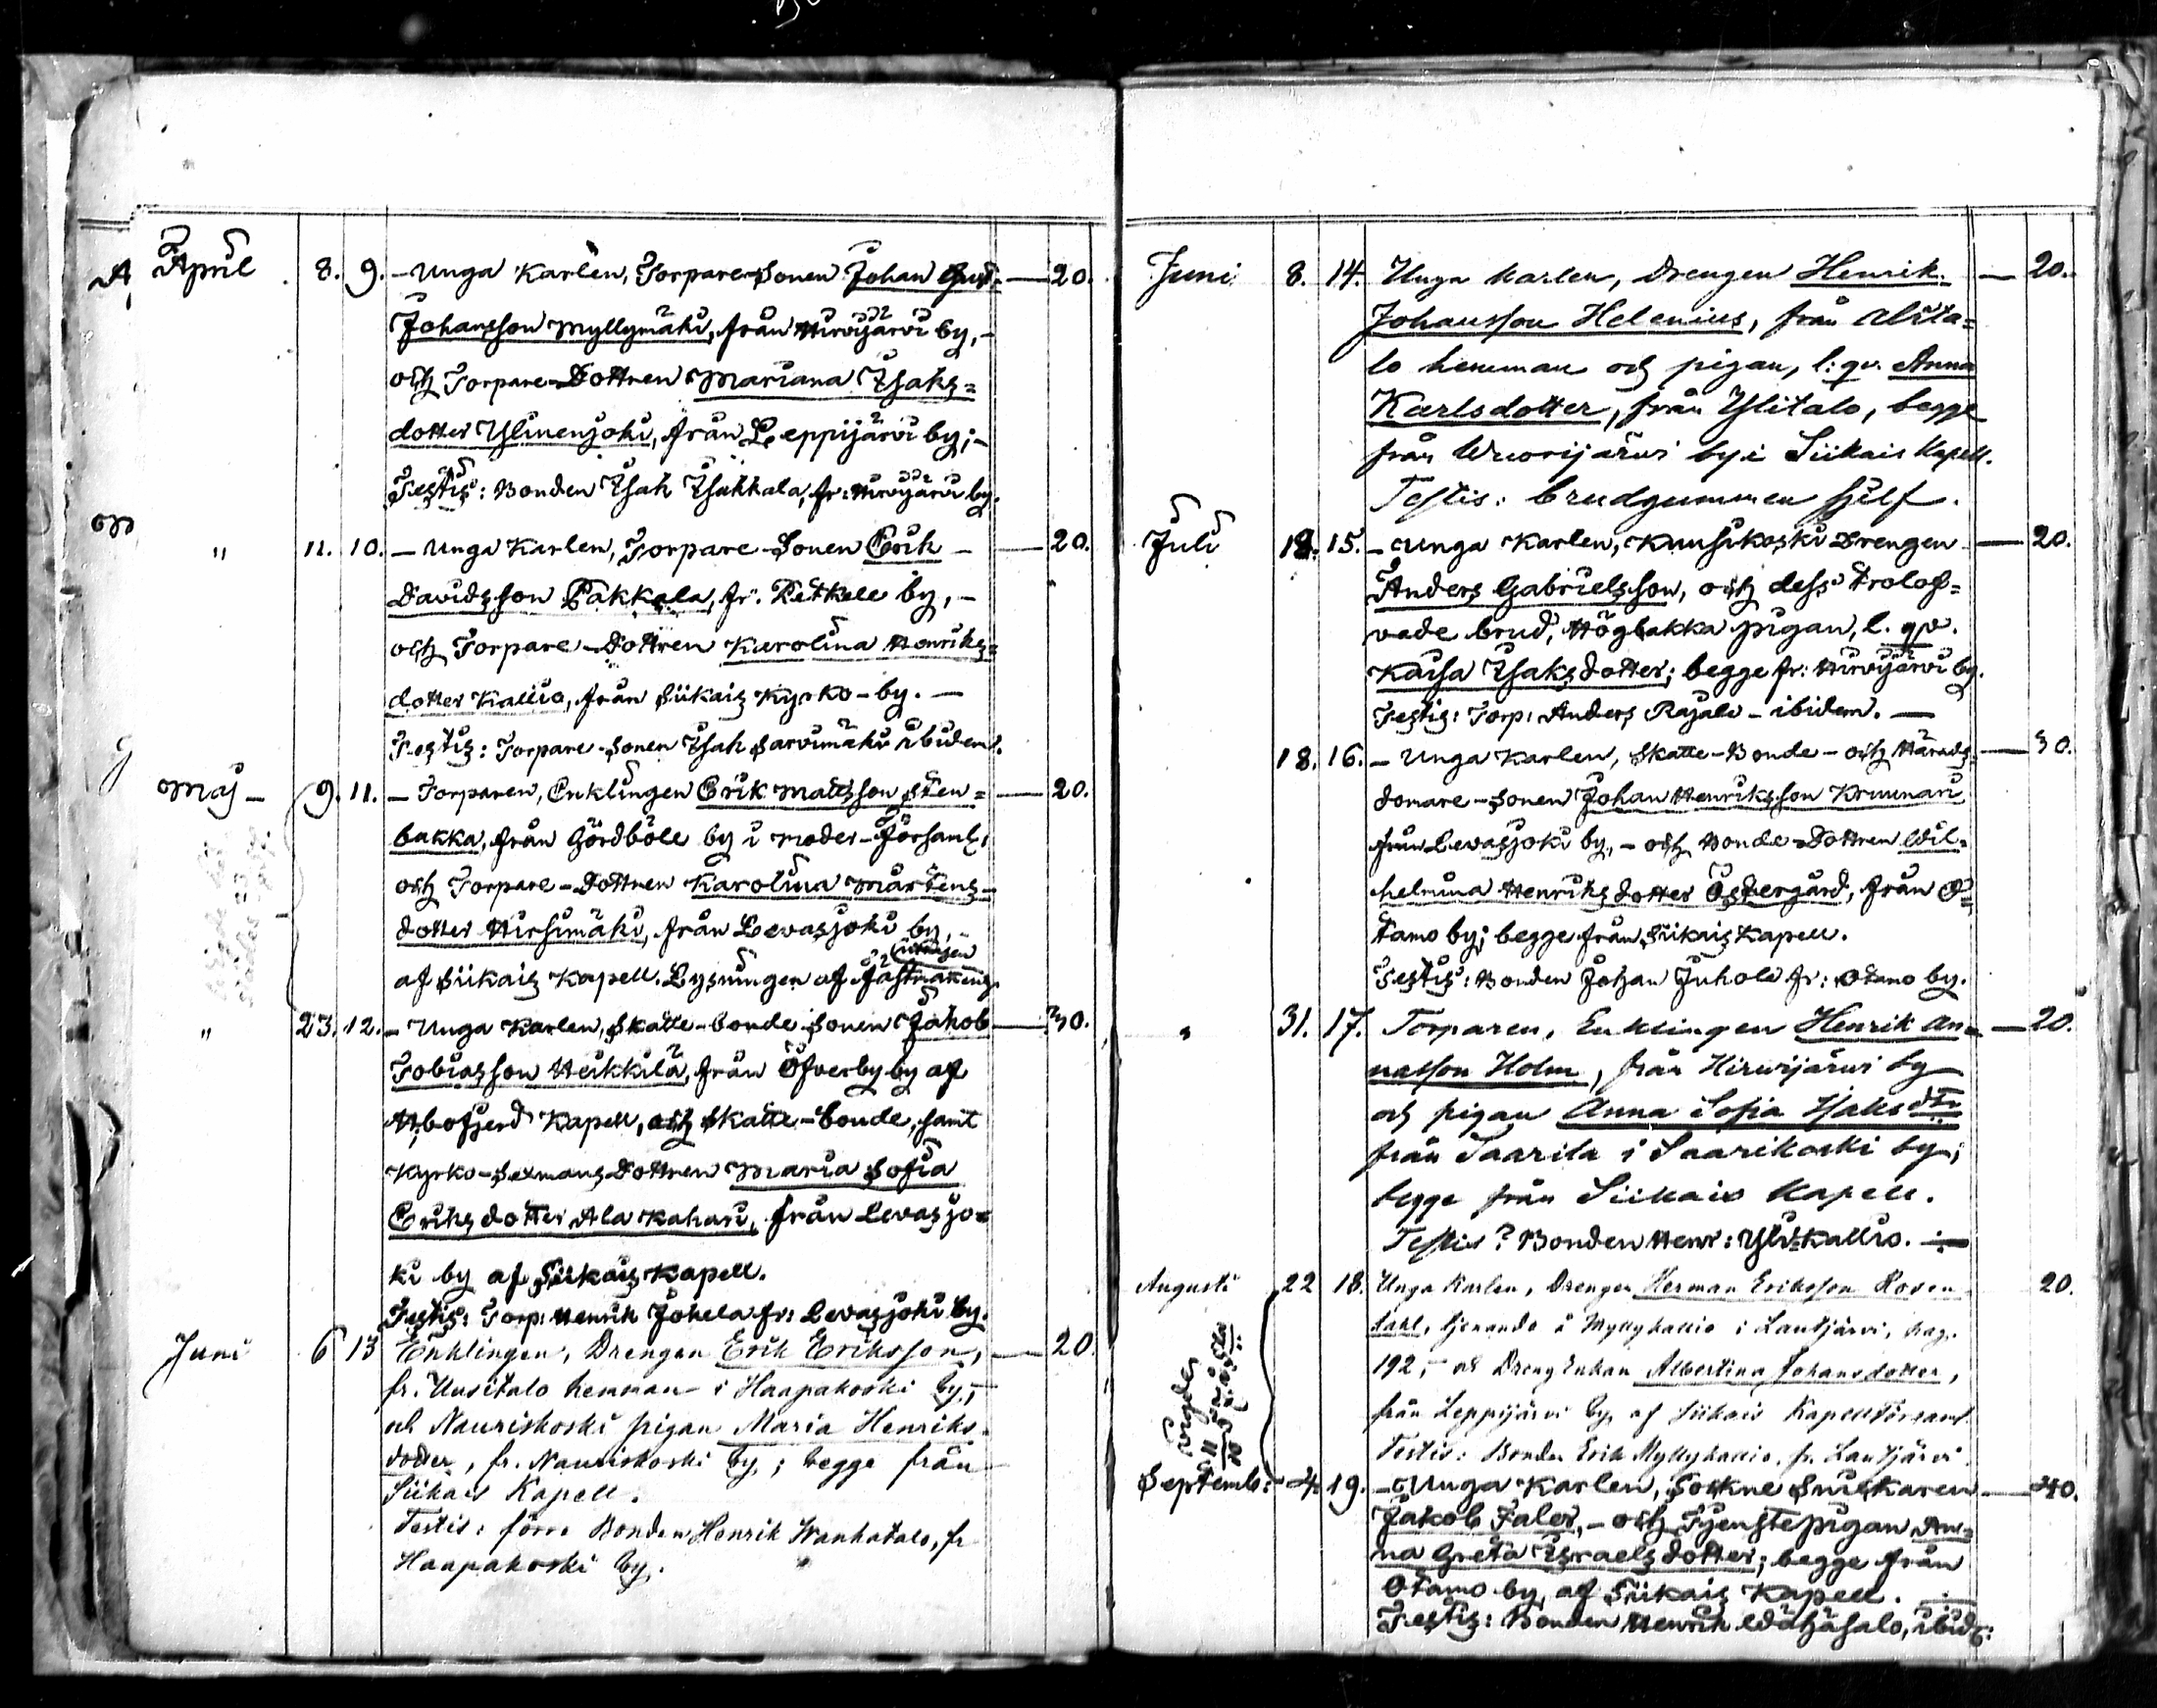 April 8. 9. – Unga Karlen, Torpare-Sonen Johan Gust. — 20.
Johansson Myllymäki, från Hirvijärvi by, –
och Torpare-Dottren Mariana Isaks=
dotter Ylinenjoki, från Leppijärvi by; –
Testis: Bonden Isak Isakkala, fr: Hirvijärvi by.
" 11. 10. – Unga Karlen, Torpare-Sonen Erik – — 20.
Davidsson Pakkala, fr. Petkele by, –
och Torpare-Dottren Karolina Henriks=
dotter Kallio, från Siikais Kyrko-by. —
Testis: Torpare-Sonen Isak Sarvimäki ibidem.
Maj – 9. 11. – Torparen, Enklingen Erik Mattsson Sten= — 20.
bakka, från Gördböle by i Moder-Församl:
och Torpare-Dottren Karolina Mårtens-
dotter Hirsimäki, från Levasjoki by, –
af Siikais Kapell. Lysningen af
" 23. 12. – Unga Karlen, Skatte-bonde-Sonen Jakob — 30.
Tobiasson Heikkilä, från Öfverby by af
Hvofjerd Kapell, och Skatte-bonde, samt
Kyrko-Sexmans Dottren Maria Sofia
Eriksdotter Ala Kahari, från Levasjo=
ki by af Siikais Kapell.
Testis: Torp: Henrik Jokela fr: Levasjoki by.
Juni 6 13 Enklingen, Drengen Erik Eriksson, — 20.
fr. Uusitalo hemman i Haapakoski by, –
och Nauriskoski pigan Maria Henriks-
dotter, fr. Nauriskoski by; begge från
Siikais Kapell.
Testis: förre Bonden Henrik Wanhatalo, fr
Haapakoski by.
Juni 8. 14. Unga Karlen, Drengen Henrik — 20.
Johansson Helenius, från Alita=
lo hemman och pigan, l: qv. Anna
Karlsdotter, från Ylitalo, begge
från Wuorijärvi by i Siikais Kapell.
Testis: brudgummen sjelf.
Juli 18. 15. – Unga Karlen, Kuusikoski Drengen — 20.
Anders Gabrielsson, och dess trolof=
vade brud, Högbakka pigan, l. qv.
Kaisa Isaksdotter; begge fr: Hirvijärvi by.
Testis: Torp: Anders Rajala – ibidem. —
18. 16. – Unga Karlen, Skatte-Bonde – och Härads- — 30.
domare-Sonen Johan Henriksson Kruunari
från Levasjoki by, – och Bonde-Dottren Wil=
helmina Henriksdotter Östergård, från O=
tamo by; begge från Siikais Kapell.
Testis: Bonden Johan Juhola fr: Otamo by.
" 31. 17. Torparen, Enklingen Henrik An= — 20.
nasson Holm, från Hirvijärvi by
och pigan Anna Sofia Isaksdtr
från Saarila i Saarikoski by;
begge från Siikais Kapell.
Testis: Bonden Henr: Yli-Kallio. —
Augusti 22 18. Unga Karlen, Drengen Herman Eriksson Rosen- 20.
dahl, tjenande å Myllykallio i Lautjärvi, pag.
192, – och Drengenkan Albertina Johansdotter,
från Leppijärvi by, af Siikais Kapellförsaml.
Testis: Bonden Erik Myllykallio, fr. Lautjärvi.
Septemb: 4. 19. – Unga Karlen, Sockne Snickaren — 40.
Jakob Faler, – och Tjenstepigan An=
na Greta Israelsdotter; begge från
Otamo by, af Siikais Kapell. —
Testis: Bonden Henrik Wähäsalo, ibid: